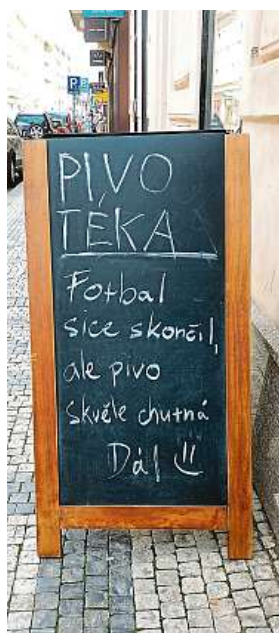 P
PIVO
TÉKA
Fotbal
sice skončil,
ale pivo
skvěle chutná
Dál